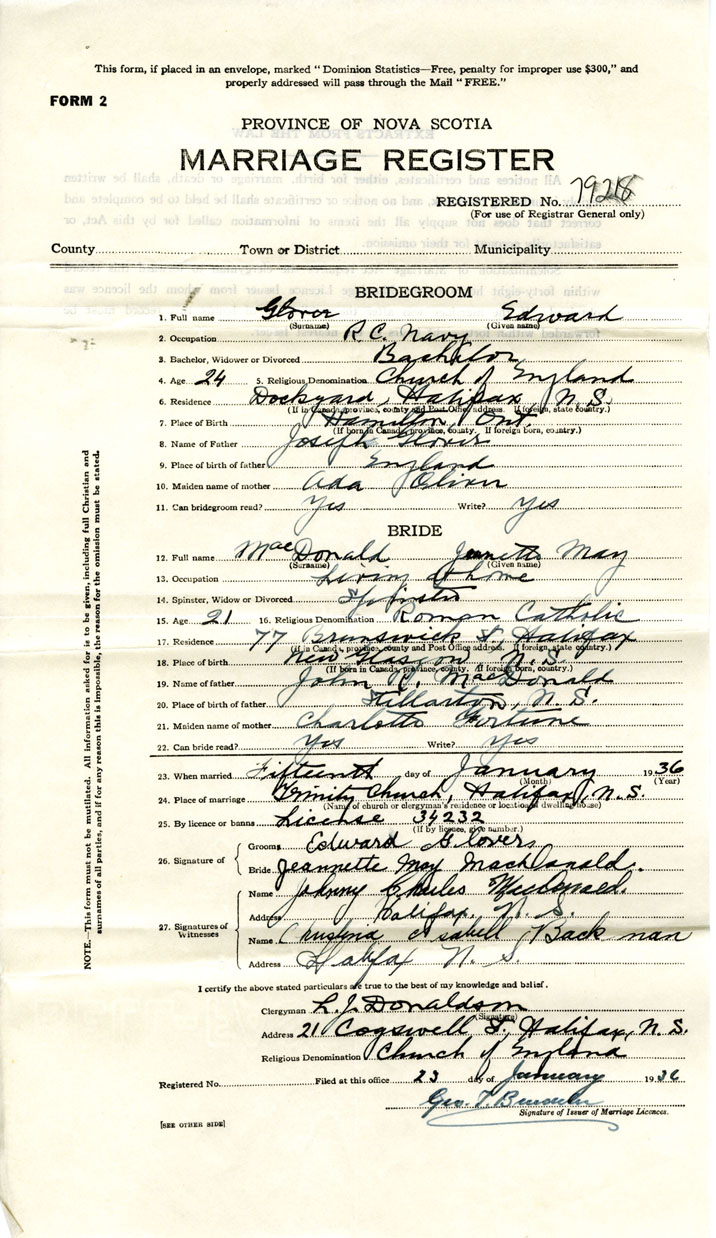 This form, if placed in an envelope, marked "Dominion Statistics—Free, penalty for improper use $300," and
properly addressed will pass through the Mail "FREE."
FORM 2
PROVINCE OF NOVA SCOTIA
MARRIAGE REGISTER
REGISTERED No.
(For use of Registrar General only)
County Town or District Municipality
BRIDEGROOM
1. Full name Glover Edward
(Surname) (Given name)
2. Occupation R.C. Navy
3. Bachelor, Widower or Divorced Bachelor
4. Age 24 5. Religious Denomination Church of England
6. Residence Dockyard, Halifax, N.S.
(If in Canada, province, county and Post Office address. If foreign, state country.)
7. Place of Birth Hamilton, Ont.
(If born in Canada, province, county. If foreign born, country.)
8. Name of Father Joseph Glover
9. Place of birth of father England
10. Maiden name of mother Ada Oliver
11. Can bridegroom read? Yes Write? Yes
BRIDE
12. Full name MacDonald Jeanette May
(Surname) (Given name)
13. Occupation Living at home
14. Spinster, Widow or Divorced Spinster
15. Age 21 16. Religious Denomination Roman Catholic
17. Residence 77 Brunswick St, Halifax
(If in Canada, province, county and Post Office address. If foreign, state country.)
18. Place of birth New Glasgow, N.S.
(If born in Canada, province, county. If foreign born, country.)
19. Name of father John R. MacDonald
20. Place of birth of father Stellarton, N.S.
21. Maiden name of mother Charlotte Fortune
22. Can bride read? Yes Write? Yes
23. When married Fifteenth day of January 1936
(Month) (Year)
24. Place of marriage Trinity Church, Halifax, N.S.
(Name of church or clergyman's residence or location of dwelling house)
25. By licence or banns License 34232
(If by licence, give number.)
26. Signature of
Groom Edward Glover
Bride Jeannette May MacDonald.
27. Signatures of Witnesses
Name Johnny Charles Macdonald.
Address Halifax. N. S.
Name Christena Isabell Backman
Address Halifax N. S.
I certify the above stated particulars are true to the best of my knowledge and belief.
Clergyman L. J. Donaldson
(Signature)
Address 21 Cogswell St, Halifax, N.S.
Religious Denomination Church of England
Registered No. Filed at this office 23 day of January 1936
Geo. T.
Signature of Issuer of Marriage Licences.
[SEE OTHER SIDE]
NOTE.—This form must not be mutilated. All information asked for is to be given, including full Christian and
surnames of all parties, and if for any reason this is impossible, the reason for the omission must be stated.